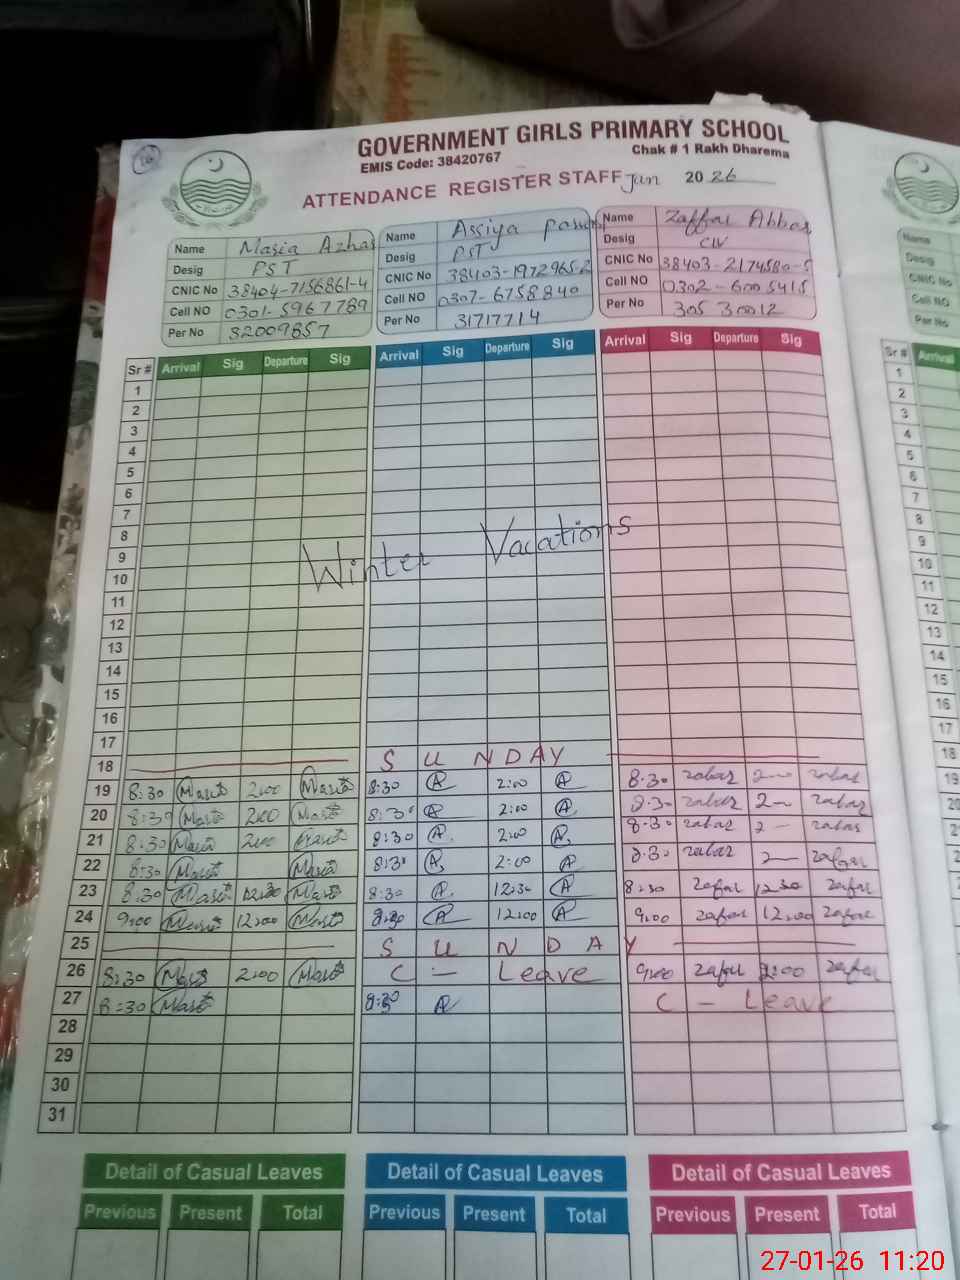 16
GOVERNMENT GIRLS PRIMARY SCHOOL
EMIS Code: 38420767 Chak # 1 Rakh Dharema
ATTENDANCE REGISTER STAFF Jan 2026
Name Maria Azhar Name Assiya Name Zaffar Abbas
Desig PST Desig PST Desig CIV
CNIC No 38404-7156861-4 CNIC No 38403-1972965-2 CNIC No 38403-2174580-5
Cell NO 0301-5967789 Cell NO 0307-6758840 Cell NO 0302-6005415
Per No 32009857 Per No 31717714 Per No 30530012
Sr # Arrival Sig Departure Sig Arrival Sig Departure Sig Arrival Sig Departure Sig
1
2
3
4
5
6
7
8
9 Winter Vacations
10
11
12
13
14
15
16
17
18 SUNDAY
19 8:30 Maria 2:00 Maria 8:30 A 2:00 A 8:30 zafar 2 — zafar
20 8:30 Maria 2:00 Maria 8:30 A 2:00 A 8:30 zafar 2 — zafar
21 8:30 Maria 2:00 Maria 8:30 A 2:00 A 8:30 zafar 2 — zafar
22 8:30 Maria Maria 8:30 A 2:00 A 8:30 zafar 2 — zafar
23 8:30 Maria 12:30 Maria 8:30 A 12:30 A 8:30 zafar 12:30 zafar
24 9:00 Maria 12:00 Maria 8:30 A 12:00 A 9:00 zafar 12:00 zafar
25 SUNDAY
26 8:30 Maria 2:00 Maria C — Leave 9:00 zafar 2:00 zafar
27 8:30 Maria 8:30 A C — Leave
28
29
30
31
Detail of Casual Leaves Detail of Casual Leaves Detail of Casual Leaves
Previous Present Total Previous Present Total Previous Present Total
Name
Desig
CNIC No
Cell NO
Per No
Sr # Arrival
1
2
3
4
5
6
7
8
9
10
11
12
13
14
15
16
17
18
19
20
27-01-26 11:20